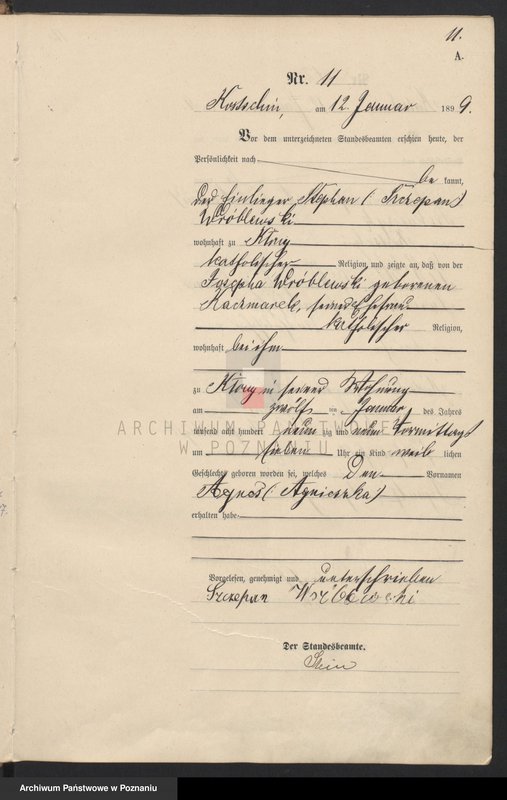 11.
A.
Nr. 11
Kostschin, am 12. Januar 1899.
Vor dem unterzeichneten Standesbeamten erschien heute, der
Persönlichkeit nach
be kannt,
der Einlieger Stephan (Szczepan)
Wróblewski
wohnhaft zu Klony
katholischer Religion, und zeigte an, daß von der
Josepha Wróblewski geborenen
Kaczmarek, seiner Ehefrau
katholischer Religion,
wohnhaft bei ihm
zu Klony in seiner Wohnung
am zwölf ten Januar des Jahres
tausend acht hundert neun zig und neun Vormittags
um sieben Uhr ein Kind weib lichen
Geschlechts geboren worden sei, welches den Vornamen
Agnes (Agnieszka)
erhalten habe.
Vorgelesen, genehmigt und unterschrieben
Szczepan Wróblewski
Der Standesbeamte.
ARCHIWUM PAŃSTWOWE
W POZNANIU
Archiwum Państwowe w Poznaniu